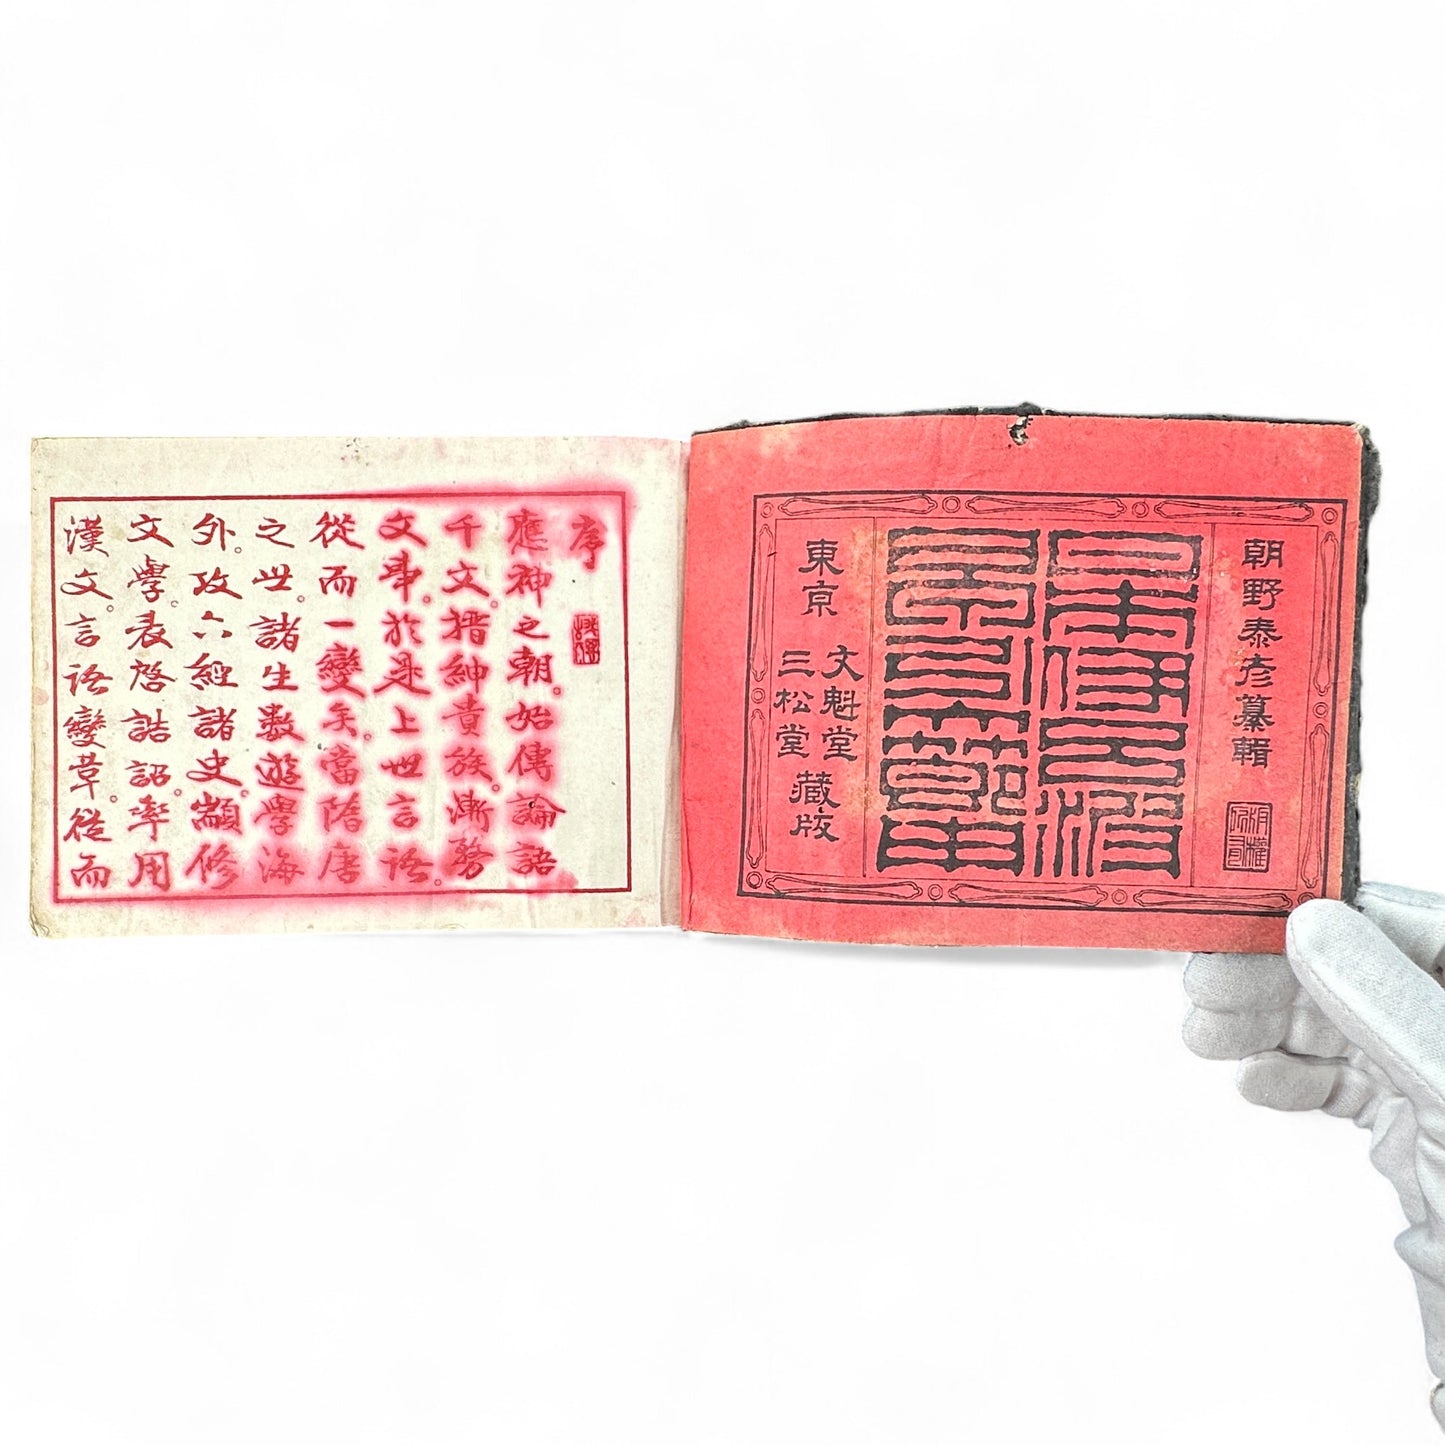 朝野泰彦纂輯
東京
文魁堂
三松堂
藏版
序
應神之朝。始傳論語
千文。搢紳貴族。漸務
文事。於是上世言語。
從而一變矣。當隋唐
之世。諸生數遊學海
外。攷六經諸史。顓修
文學。表啓誥詔。率用
漢文。言語變革。從而